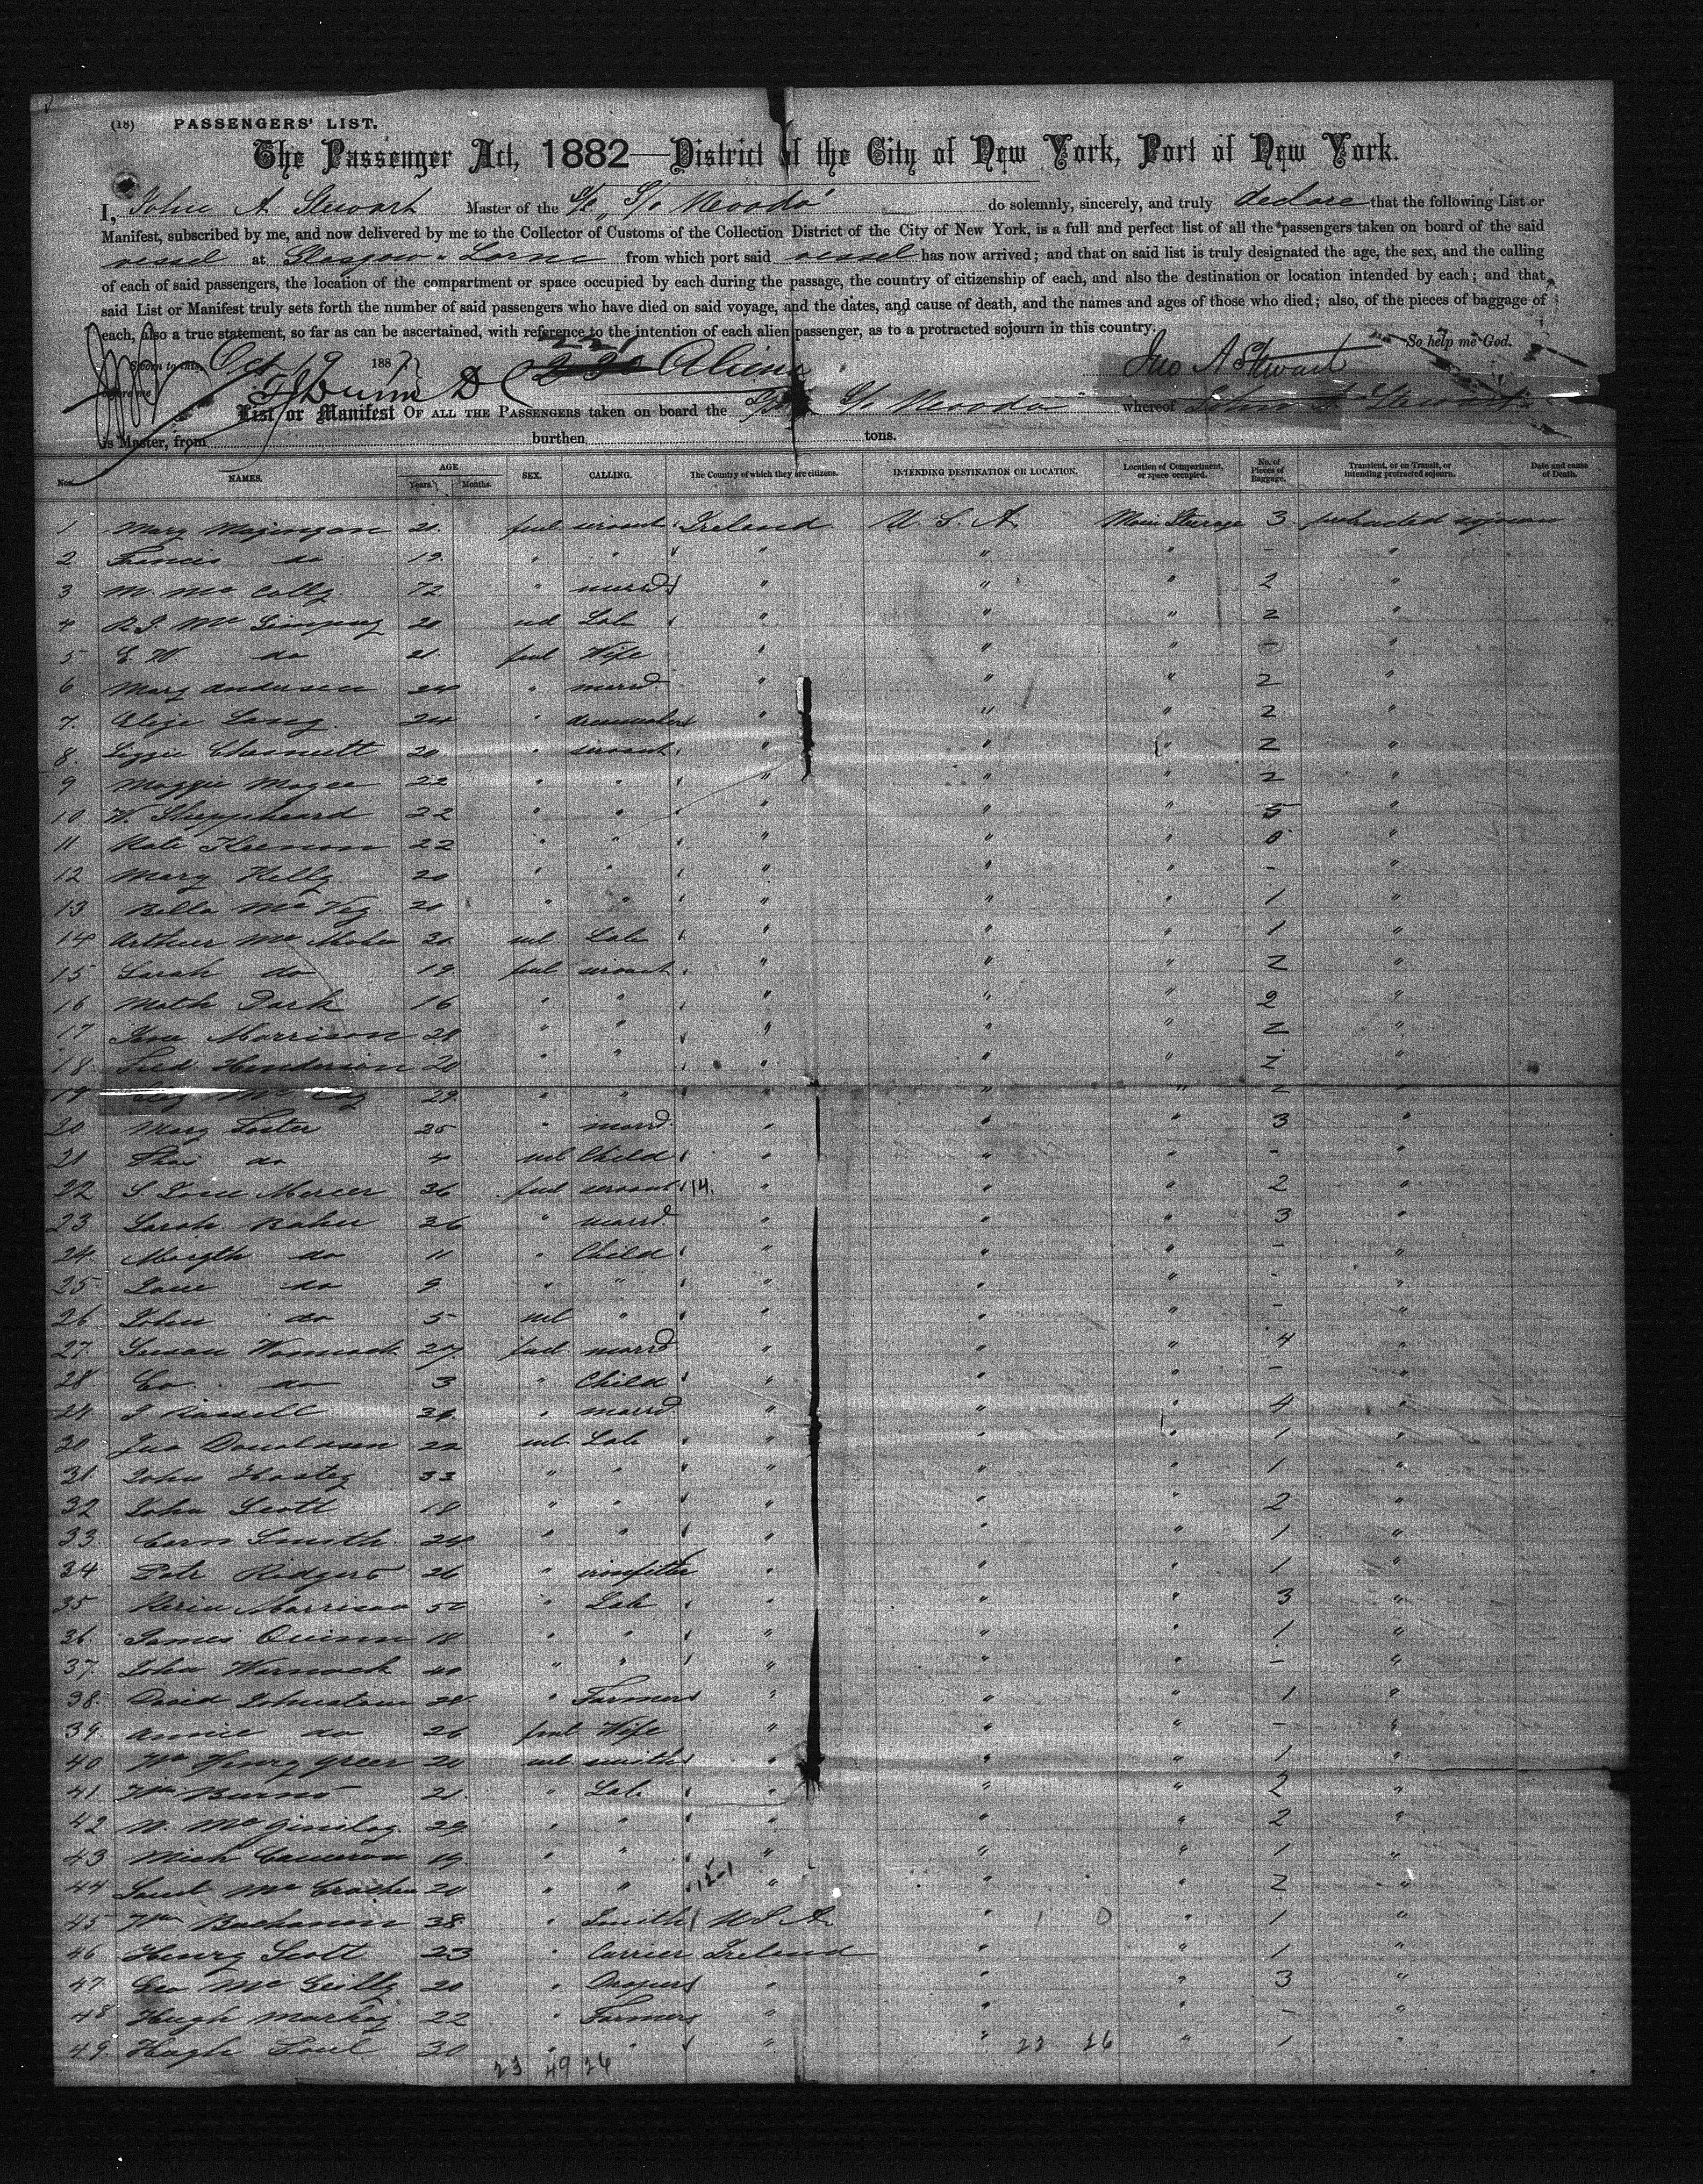 (18) PASSENGERS' LIST.
The Passenger Act, 1882—District of the City of New York, Port of New York.
I, John A Stewart Master of the S/S Nevada do solemnly, sincerely, and truly declare that the following List or
Manifest, subscribed by me, and now delivered by me to the Collector of Customs of the Collection District of the City of New York, is a full and perfect list of all the passengers taken on board of the said
vessel at Glasgow & Larne from which port said vessel has now arrived; and that on said list is truly designated the age, the sex, and the calling
of each of said passengers, the location of the compartment or space occupied by each during the passage, the country of citizenship of each, and also the destination or location intended by each; and that
said List or Manifest truly sets forth the number of said passengers who have died on said voyage, and the dates, and cause of death, and the names and ages of those who died; also, of the pieces of baggage of
each, also a true statement, so far as can be ascertained, with reference to the intention of each alien passenger, as to a protracted sojourn in this country.
So help me God.
Sworn to this Oct 19 1887 221 Aliens Jno A Stewart
before me
List or Manifest OF ALL THE PASSENGERS taken on board the S/S Nevada whereof John A Stewart
is Master, from burthen tons.
Nos. NAMES. AGE Years. Months. SEX. CALLING. The Country of which they are citizens. INTENDING DESTINATION OR LOCATION. Location of Compartment, or space occupied. No. of Pieces of Baggage. Transient, or on Transit, or intending protracted sojourn. Date and cause of Death.
1 Mary 21 feml servant Ireland U. S. A Main Steerage 3 protracted sojourn
2 Francis do 19 " " " " " - "
3 M. Mc 72 " marrd " " " 2 "
4 R.J. Mc 20 ml Lab " " " 2 "
5 E. W. do 21 feml Wife " " " - "
6 Mary Anderson 24 " marrd " " " 2 "
7 Lang 24 " dressmaker " " " 2 "
8 Lizzie Chesnutt 20 " servant " " " 2 "
9 Maggie Magee 22 " " " " " 2 "
10 W. Sheppheard 22 " " " " " 5 "
11 Kate Keenan 22 " " " " " "
12 Mary Kelly 20 " " " " " - "
13 Bella Mc Vey 21 " " " " " 1 "
14 Arthur Mc 30 ml Lab " " " 1 "
15 Sarah do 19 feml servant " " " 2 "
16 Park 16 " " " " " 2 "
17 Jane Morrison 28 " " " " " 2 "
18 Henderson 20 " " " " " 2 "
19 Mc 29 " " " " " 2 "
20 Mary 25 " marrd " " " 3 "
21 Thos do 4 ml Child " " " - "
22 S Jane Mercer 36 feml servant 14. " " " 2 "
23 Sarah 26 " marrd " " " 3 "
24 Margth do 11 " Child " " " - "
25 Jane do 9 " " " " " - "
26 John do 5 ml " " " " - "
27 Susan 27 feml marrd " " " 4 "
28 do 3 " Child " " " - "
29 J Russell 36 " marrd " " " 4 "
30 Jno Donaldson 22 ml Lab " " " 1 "
31 John 33 " " " " " 1 "
32 John Scott 18 " " " " " 2 "
33 Smith 24 " " " " " 1 "
34 Pete Ridgers 26 " ironfitter " " " 1 "
35 Morrison 50 " Lab " " " 3 "
36 James Quinn 18 " " " " " 1 "
37 John Warnock 40 " " " " " - "
38 David Johnstown 28 " Farmer " " " 1 "
39 Annie do 26 feml Wife " " " - "
40 Wm Henry Greer 20 ml smith " " " 1 "
41 Wm Burns 21 " Lab " " " 2 "
42 N. Mc 29 " " " " " 2 "
43 Mich Cameron 19 " " " " " 1 "
44 Saml Mc Cracken 20 " " " " " 2 "
45 Wm Buchanan 38 " Smith U S A " 1 0 " 1 "
46 Henry Scott 23 " Carrier Ireland " " 1 "
47 Geo Mc 20 " Draper " " " 3 "
48 Hugh 22 " Farmer " " " - "
49 Hugh 30 " " " " 22 26 " 1 "
23 49 26